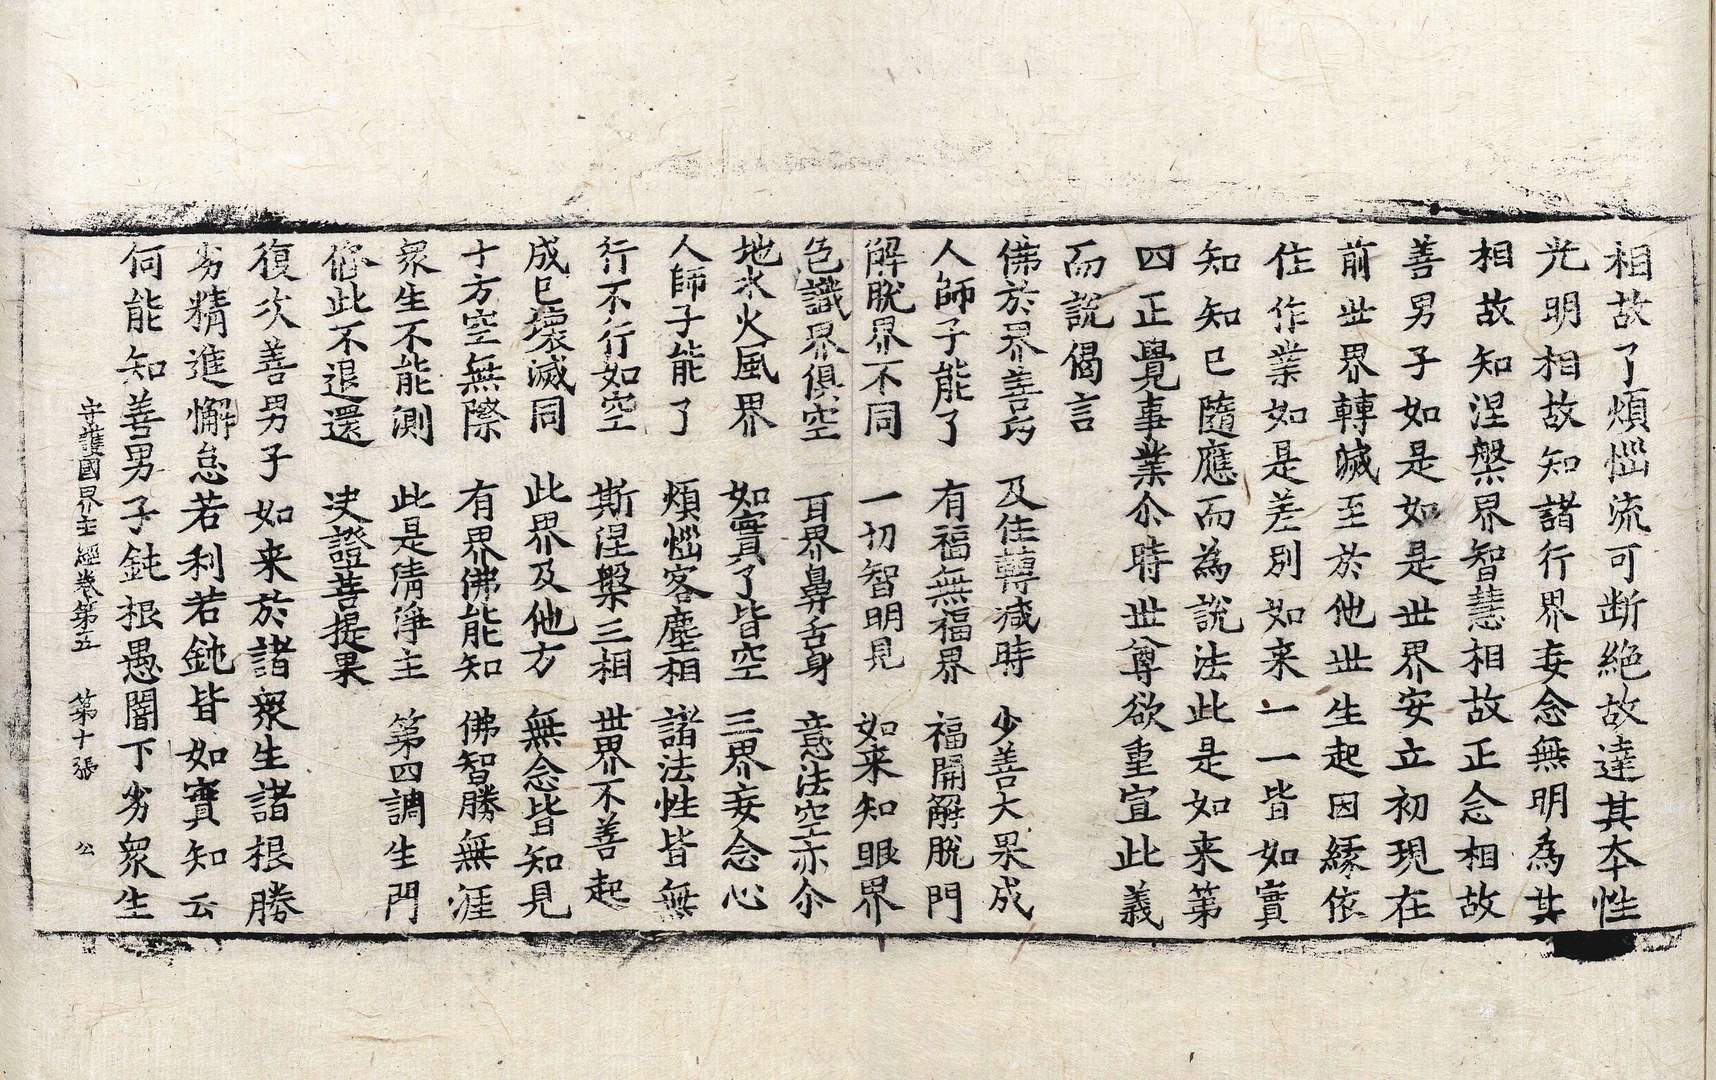 相故了煩惱流可断絶故達其本性
光明相故知諸行界妄念無明為其
相故知涅槃界智慧相故正念相故
善男子如是如是世界安立初現在
前世界轉滅至於他世生起因緣依
住作業如是差別如来一一皆如實
知知已隨應而為說法此是如来第
四正覺事業尒時世尊欲重宣此義
而說偈言
佛於界善巧　及住轉減時　少善大果成
人師子能了　有福無福界　福開解脫門
解脫界不同　一切智明見　如来知眼界
色識界俱空　耳界鼻舌身　意法空亦尒
地水火風界　如實了皆空　三界妄念心
人師子能了　煩惱客塵相　諸法性皆無
行不行如空　斯涅槃三相　世界不善起
成已壞滅同　此界及他方　無念皆知見
十方空無際　有界佛能知　佛智勝無涯
衆生不能測　此是清淨主　第四調生門
修此不退還　決證菩提果
復次善男子如来於諸衆生諸根勝
劣精進懈怠若利若鈍皆如實知云
何能知善男子鈍根愚闇下劣衆生
守護國界主經卷第五　第十張　公